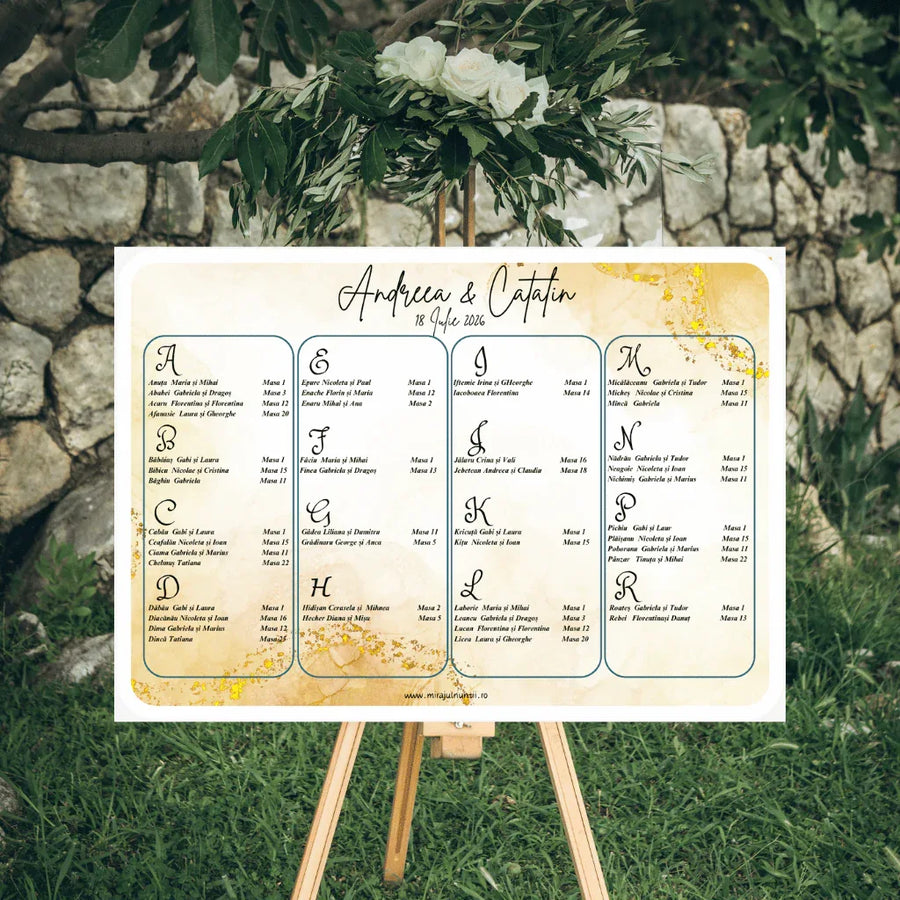 Andreea & Catalin
18 Iulie 2026
A
Anuța Maria și Mihai Masa 1
Ababei Gabriela și Dragoș Masa 3
Acaru Florentina și Florentina Masa 12
Afanasie Laura și Gheorghe Masa 20
B
Băbăiaș Gabi și Laura Masa 1
Bibicu Nicolae și Cristina Masa 15
Băghiu Gabriela Masa 11
C
Cabău Gabi și Laura Masa 1
Ceafalău Nicoleta și Ioan Masa 15
Ciama Gabriela și Marius Masa 11
Chelnuș Tatiana Masa 22
D
Dăbău Gabi și Laura Masa 1
Diacănău Nicoleta și Ioan Masa 16
Dima Gabriela și Marius Masa 12
Dincă Tatiana Masa 25
E
Epure Nicoleta și Paul Masa 1
Enache Florin și Maria Masa 12
Enaru Mihai și Ana Masa 2
F
Făciu Maria și Mihai Masa 1
Finea Gabriela și Dragoș Masa 13
G
Gădea Liliana și Dumitra Masa 11
Grădinaru George și Anca Masa 5
H
Hidișan Cerasela și Mihnea Masa 2
Hecher Diana și Mișu Masa 5
I
Iftemie Irina și GHeorghe Masa 1
Iacoboaea Florentina Masa 14
J
Jălaru Crina și Vali Masa 16
Jebetean Andreea și Claudiu Masa 18
K
Kricuță Gabi și Laura Masa 1
Kițu Nicoleta și Ioan Masa 15
L
Laborie Maria și Mihai Masa 1
Leancu Gabriela și Dragoș Masa 3
Lucan Florentina și Florentina Masa 12
Licea Laura și Gheorghe Masa 20
M
Micălăceanu Gabriela și Tudor Masa 1
Micheș Nicolae și Cristina Masa 15
Mincă Gabriela Masa 11
N
Nădrău Gabriela și Tudor Masa 1
Neagoie Nicoleta și Ioan Masa 15
Nichimiș Gabriela și Marius Masa 11
P
Pichiu Gabi și Laur Masa 1
Plăișanu Nicoleta și Ioan Masa 15
Pohorana Gabriela și Marius Masa 11
Pânzar Tinuța și Mihai Masa 22
R
Roateș Gabriela și Tudor Masa 1
Rebei Florentinași Danuț Masa 13
www.mirajulnuntii.ro